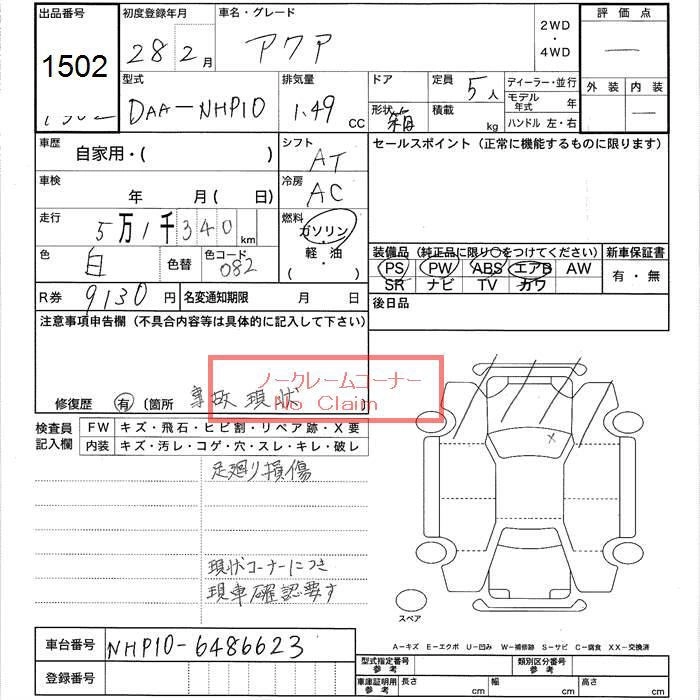 出品番号 初度登録年月 車名・グレード 評価点
1502 28 2月 アクア 2WD ・ 4WD —
型式 排気量 ドア 定員 ディーラー・並行 外装 内装
DAA-NHP10 1.49 CC 形状 箱 積載 kg 5人 モデル年式 年 —
ハンドル 左・右
車歴 自家用・( ) シフト AT セールスポイント(正常に機能するものに限ります)
車検 年 月( 日) 冷房 AC
走行 5万1千340km 燃料 ガソリン・軽・油( )
色 白 色替 色コード 082 装備品(純正品に限り○をつけてください) 新車保証書
PS PW ABS エアB AW 有・無
SR ナビ TV カワ
R券 9130円 名変通知期限 月 日 後日品
注意事項申告欄(不具合内容等は具体的に記入して下さい)
ノークレームコーナー
No Claim
修復歴 有 〔箇所 事故現状 〕
検査員記入欄 FW キズ・飛石・ヒビ割・リペア跡・X要
内装 キズ・汚レ・コゲ・穴・スレ・キレ・破レ
足廻り損傷
X
現状コーナーにつき
現車確認要す
スペア
車台番号 NHP10-6486623
A-キズ E-エクボ U-凹み W-補修跡 S-サビ C-腐食 XX-交換済
登録番号 型式指定番号 参考 類別区分番号 参考
車庫証明用 参考 長さ cm 幅 cm 高さ cm